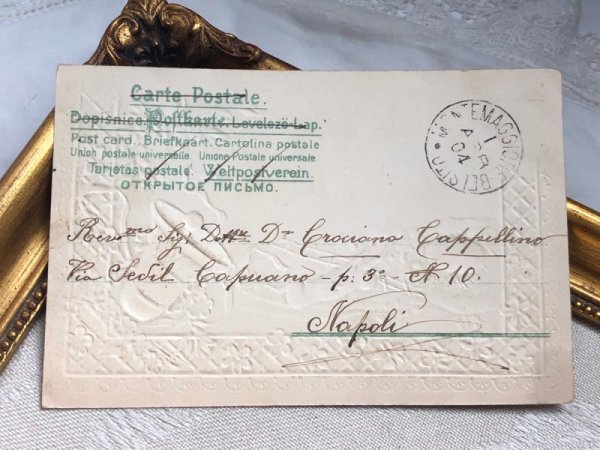 Carte Postale.
Dopisnice. Postkarte. Levelező-Lap.
Post card. Briefkaart. Cartolina postale
Union postale universelle. Unione Postale universale
Tarjetas postale. Weltpostverein.
ОТКРЫТОЕ ПИСЬМО.
MONTEMAGGIORE BELSITO
1
APR
04
Revmo Sigr Dottre Dn Crociano Cappellino
Via Sedil Capuano - p. 3º - N 10.
Napoli